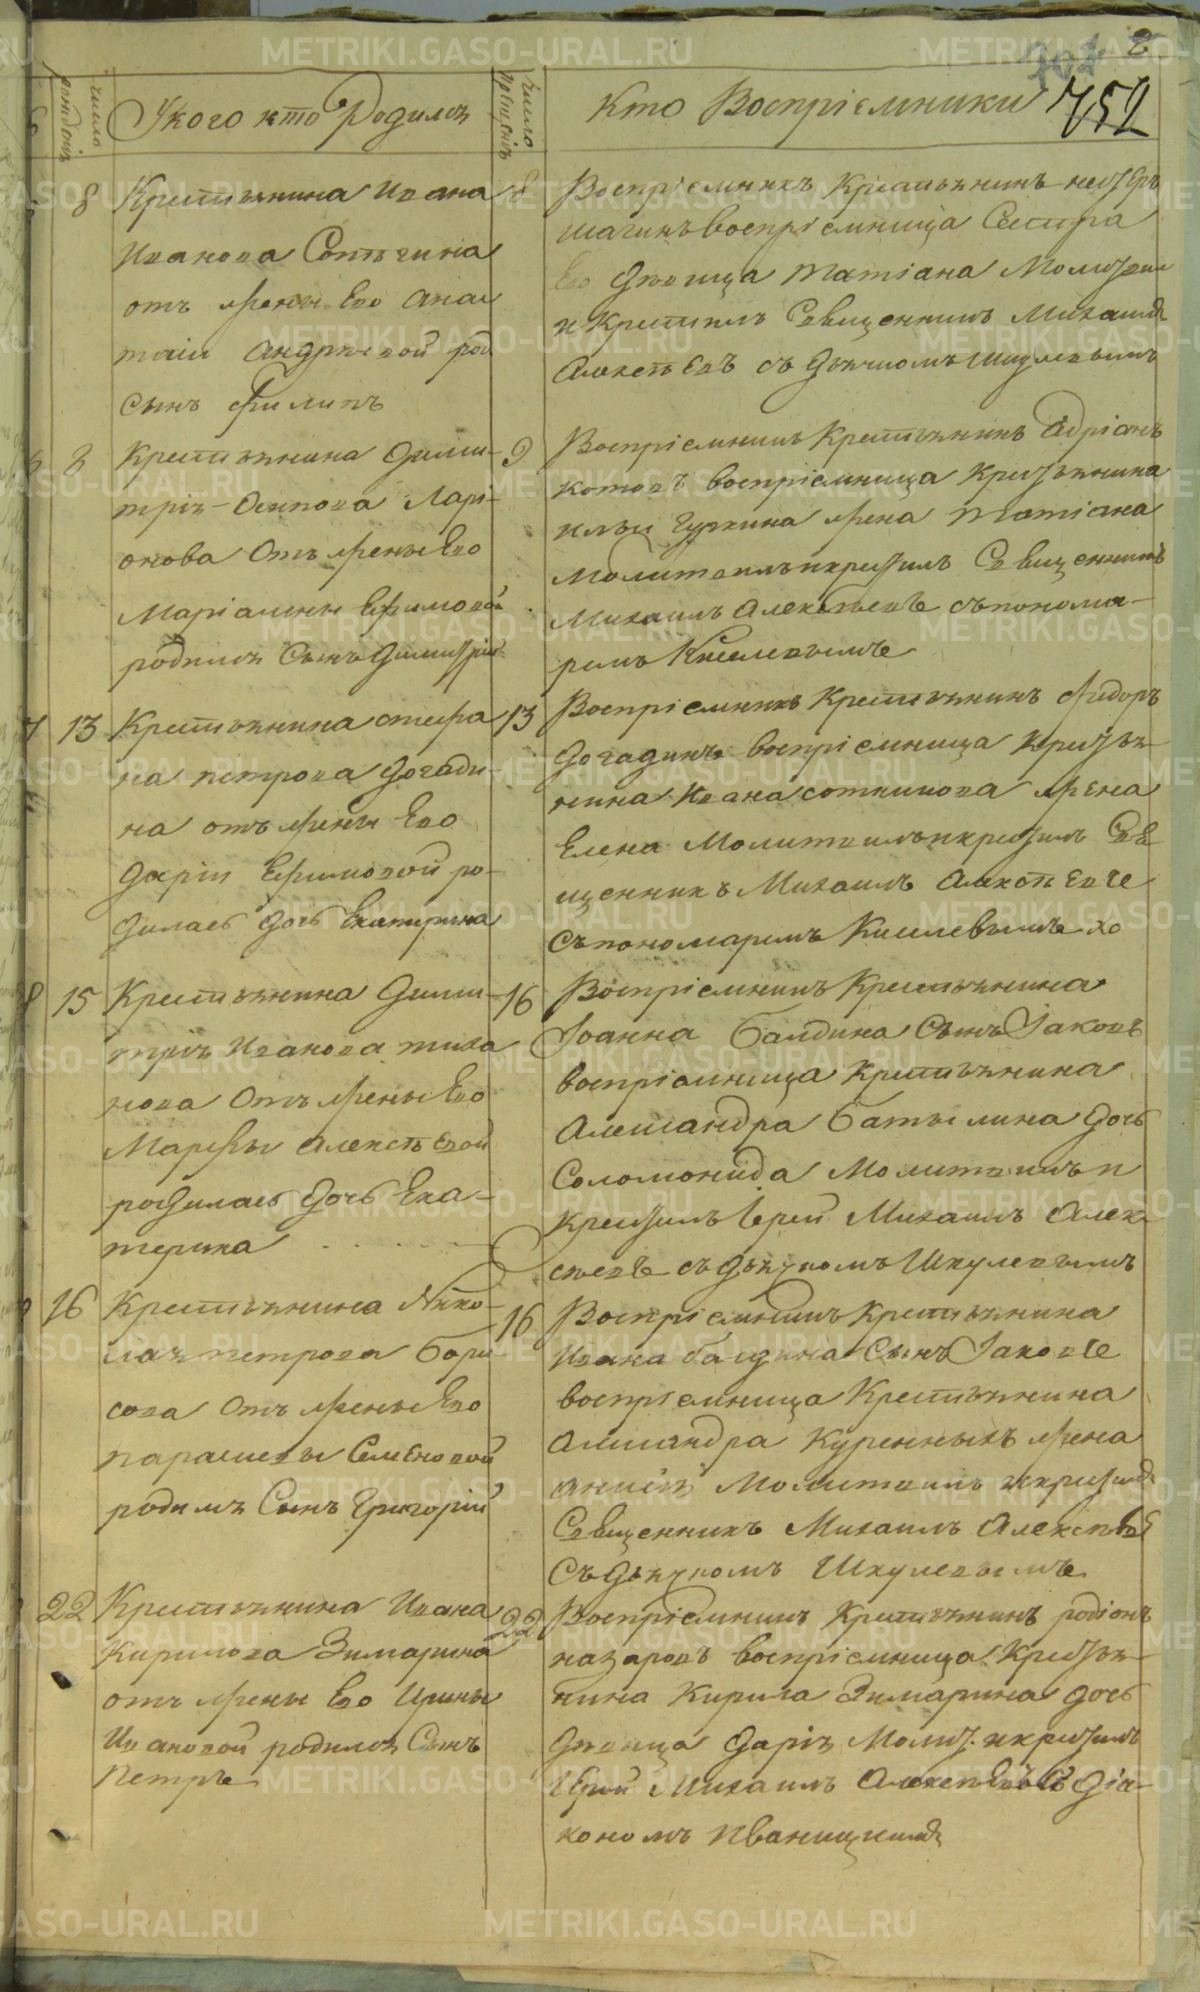 2
752
число рожденiя
У кого кто Родился
число крещенiя
Кто Воспрiемники
8
Крестьянина Ивана
Иванова Сотегина
отъ жены Его Анас
таiи Андреевой род
сынъ Филипъ
8
Воспрiемникъ Крестьянинъ
воспрiемница Сестра
Его Девица Татiана Молитвил
и Крестилъ Священникъ Михаилъ
Алексеевъ съ Дьячкомъ Шкулевымъ
6
8
Крестьянина Дими-
трiя Осипова Ларi-
онова Отъ жены Его
Марiамны Ефимовой
родился Сынъ Димитрiй
9
Воспрiемникъ Крестьянинъ Адрiанъ
Котовъ воспрiемница Крестьянина
Ильи Гуркина жена Татiана
Молитвилъ и крестилъ Священникъ
Михаилъ Алексеевъ съ понома-
ремъ Киселевымъ
7
13
Крестьянина Стефа
на Петрова Догади-
на отъ жены Его
Дарiи Ефимовой ро-
дилась Дочь Екатерина
13
Воспрiемникъ Крестьянинъ Фидоръ
Догадинъ воспрiемница Крестья-
нина Ивана Сотникова жена
Елена Молитвилъ и крестилъ Свя
щенникъ Михаилъ Алексеевъ
съ пономаремъ Киселевымъ
8
15
Крестьянина Дими-
трiя Иванова Тиха
нова Отъ жены Его
Марфы Алексеевой
родилась Дочь Ека-
терина
16
Воспрiемникъ Крестьянина
Iоанна Балдина Сынъ Iаковъ
воспрiемница Крестьянина
Александра Батылина Дочь
Соломонида Молитвилъ и
крестилъ Iерей Михаилъ Алек
сеевъ съ Дьячкомъ Шкулевымъ
9
16
Крестьянина Нико-
лая Петрова Бори
сова Отъ жены Его
Параскевы Семеновой
родился Сынъ Григорiй
16
Воспрiемникъ Крестьянина
Ивана Балдина Сынъ Iаковъ
воспрiемница Крестьянина
Александра Куренныхъ жена
Анисiя Молитвилъ и крестилъ
Священникъ Михаилъ Алексеевъ
Съ Дьячкомъ Шкулевымъ
22
Крестьянина Ивана
Кирилова Зимарина
отъ жены Его Ирины
Ивановой родился Сынъ
Петръ
22
Воспрiемникъ Крестьянинъ Родiонъ
Назаровъ воспрiемница Крестья-
нина Кирила Зимарина Дочь
Девица Дарiя Молит. и крестилъ
Iерей Михаилъ Алексеевъ съ Дiа-
кономъ Иваницкимъ
METRIKI.GASO-URAL.RU